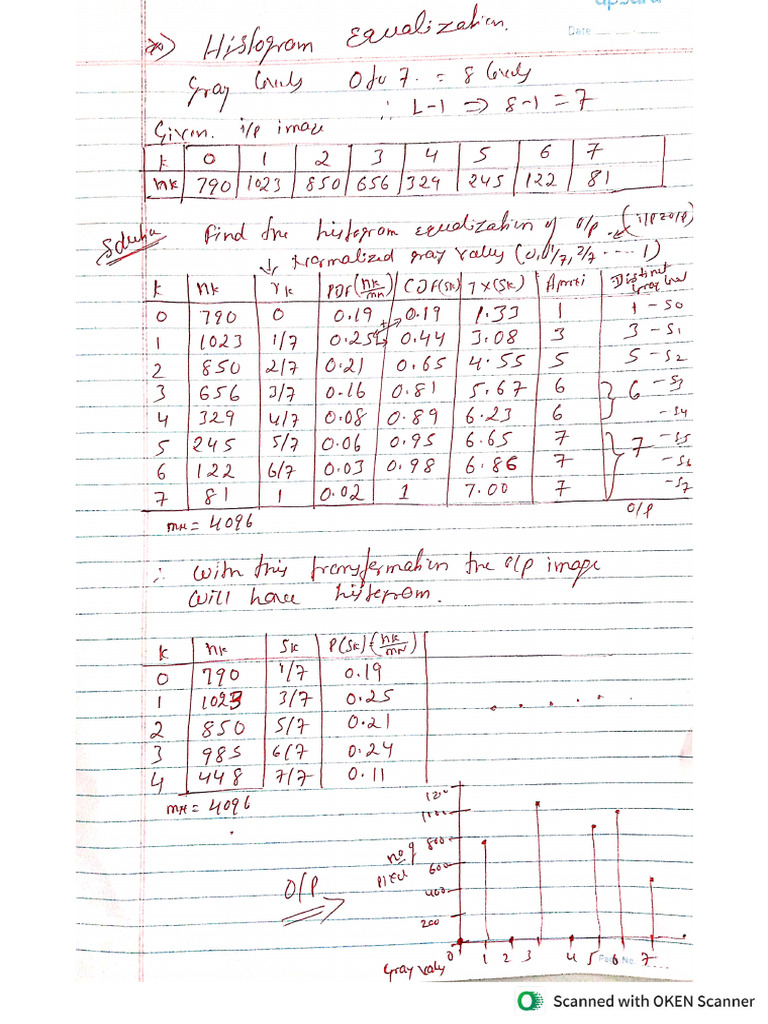 apsara
Date
20) Histogram Equalization.
Gray levels 0 to 7. = 8 levels
∴ L-1 => 8-1 = 7
Given. i/p image
k 0 1 2 3 4 5 6 7
nk 790 1023 850 656 329 245 122 81
Solution Find the histogram equalization of o/p.
↓ Normalized gray values (0, 1/7, 2/7 ..... 1)
k nk rk PDF(nk/mn) CDF(Sk) 7×(Sk) Approxi Distinct gray level
0 790 0 0.19 0.19 1.33 1 1 - S0
1 1023 1/7 0.25 0.44 3.08 3 3 - S1
2 850 2/7 0.21 0.65 4.55 5 5 - S2
3 656 3/7 0.16 0.81 5.67 6 6 - S3
4 329 4/7 0.08 0.89 6.23 6 - S4
5 245 5/7 0.06 0.95 6.65 7 7 - S5
6 122 6/7 0.03 0.98 6.86 7 - S6
7 81 1 0.02 1 7.00 7 - S7
mn = 4096 o/p
∴ with this transformation the o/p image
will have histogram.
k nk Sk P(Sk)=(nk/mn)
0 790 1/7 0.19
1 1023 3/7 0.25
2 850 5/7 0.21
3 985 6/7 0.24
4 448 7/7 0.11
mn = 4096
O/P
no of pixel
800
600
400
200
0 1 2 3 4 5 6 7
Gray values
Scanned with OKEN Scanner